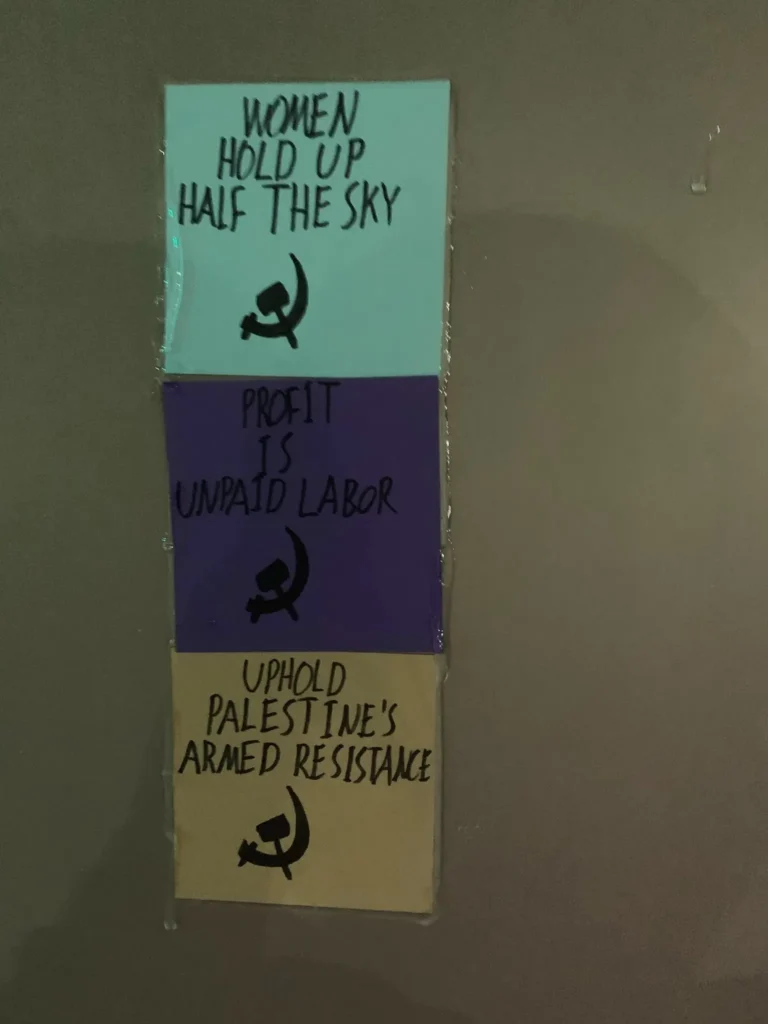 WOMEN
HOLD UP
HALF THE SKY
PROFIT
IS
UNPAID LABOR
UPHOLD
PALESTINE'S
ARMED RESISTANCE